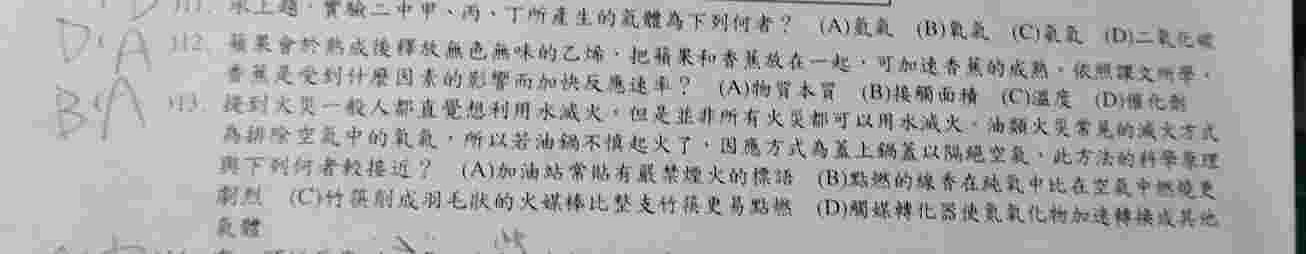 承上題，實驗二中甲、丙、丁所產生的氣體為下列何者？ (A)氫氣 (B)氧氣 (C)氯氣 (D)二氧化碳
D(A )12. 蘋果會於熟成後釋放無色無味的乙烯，把蘋果和香蕉放在一起，可加速香蕉的成熟。依照課文所學，
香蕉是受到什麼因素的影響而加快反應速率？ (A)物質本質 (B)接觸面積 (C)溫度 (D)催化劑
B(A )13. 提到火災一般人都直覺想利用水滅火，但是並非所有火災都可以用水滅火。油類火災常見的滅火方式
為排除空氣中的氧氣，所以若油鍋不慎起火了，因應方式為蓋上鍋蓋以隔絕空氣，此方法的科學原理
與下列何者較接近？ (A)加油站常貼有嚴禁煙火的標語 (B)點燃的線香在純氧中比在空氣中燃燒更
劇烈 (C)竹筷削成羽毛狀的火媒棒比整支竹筷更易點燃 (D)觸媒轉化器使氮氧化物加速轉換成其他
氣體